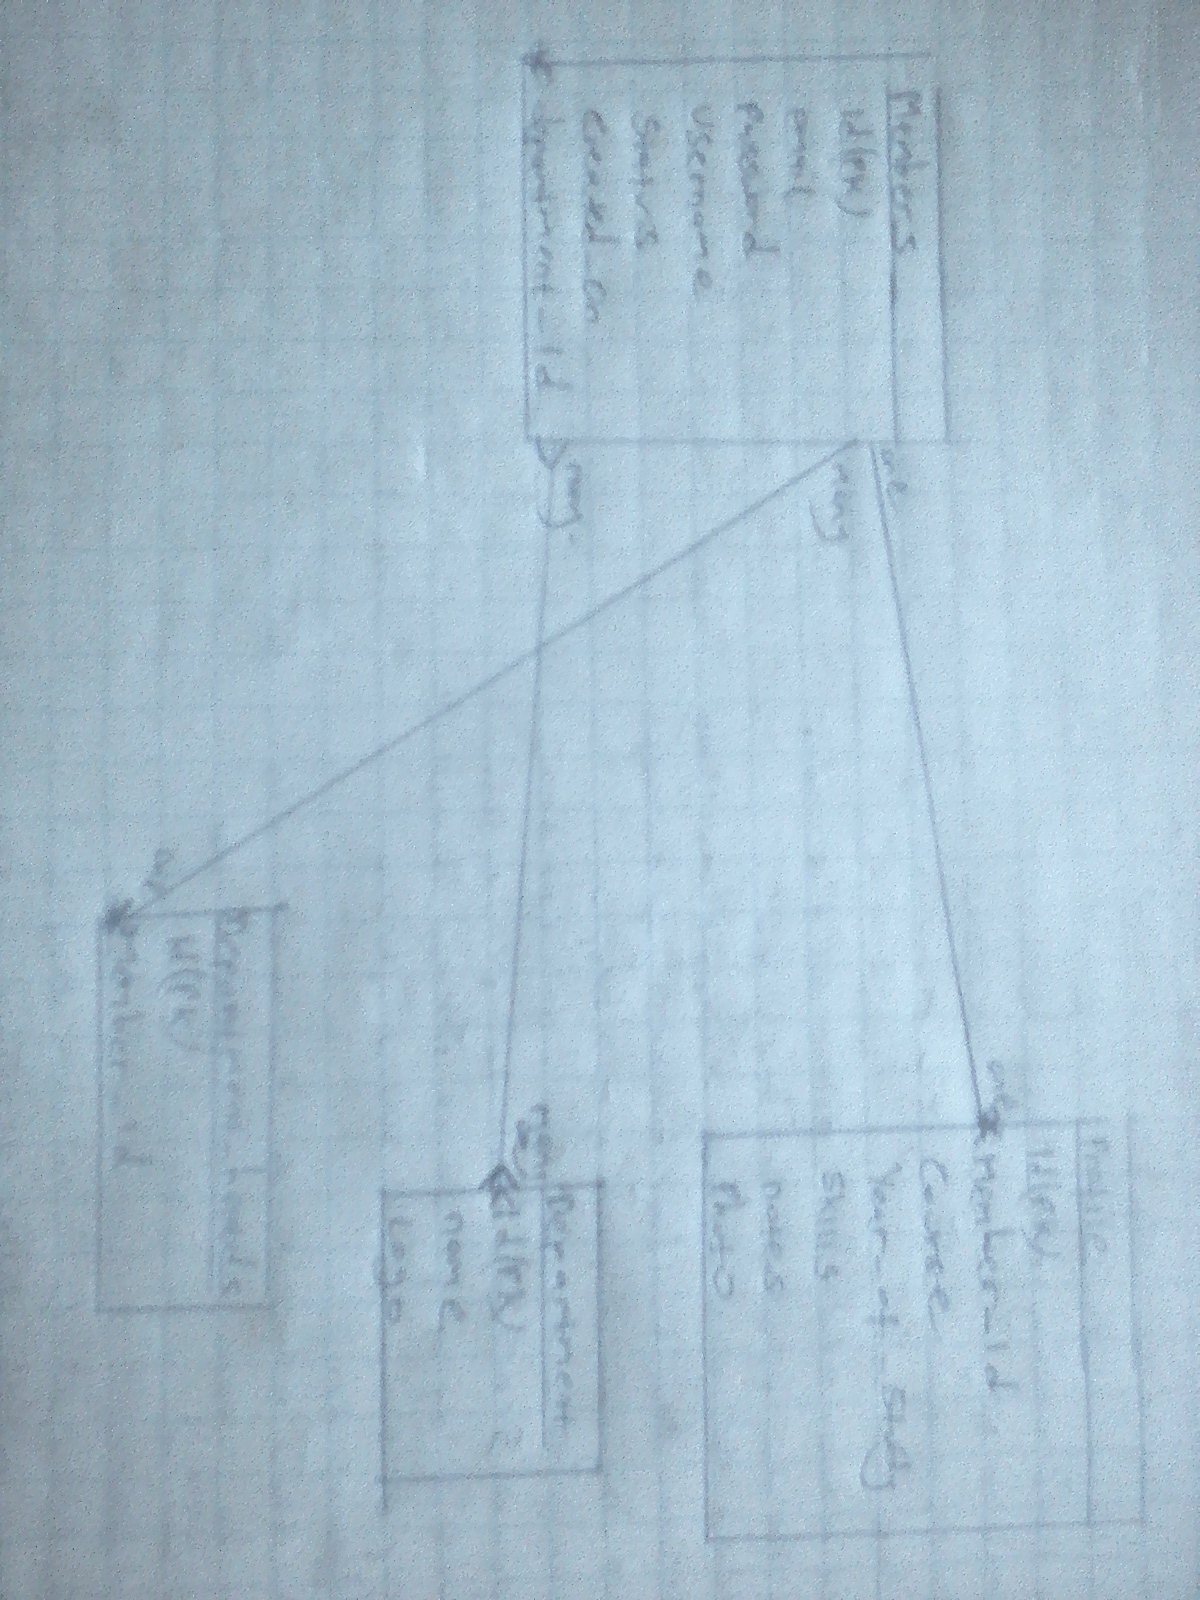 Members
Id(PK)
email
Password
Username
Status
Created_On
department_Id
one
many
many
one
Profile
Id(PK)
Member_Id
Course
Year_of_Study
Skills
notes
Photo
many
Department
Id(PK)
name
Logo
Department_heads
Id(PK)
Member_Id